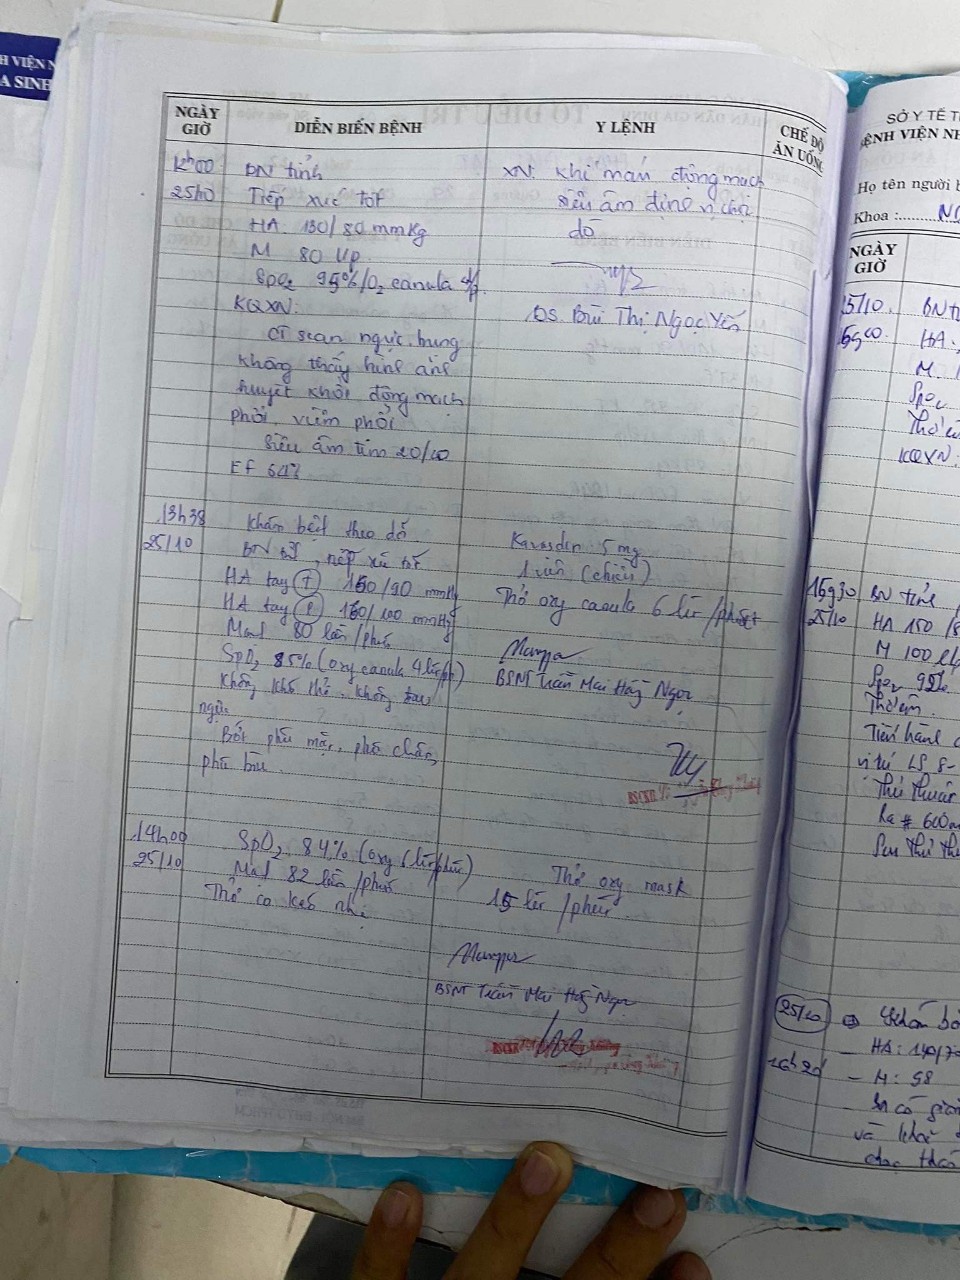 H VIỆN N
A SINH
NGÀY GIỜ
DIỄN BIẾN BỆNH
Y LỆNH
CHẾ ĐỘ ĂN UỐNG
12h00
25/10
BN tỉnh
Tiếp xúc tốt
HA: 130/80 mmHg
M 80 l/p
SpO2 95%/O2 canula
KQXN:
CT scan ngực, bụng
không thấy hình ảnh
huyết khối động mạch
phổi, viêm phổi
Siêu âm tim 20/10
EF 64%
XN: Khí máu động mạch
siêu âm định vị chọc
dò
BS. Bùi Thị Ngọc Yến
13h38
25/10
Khám bệnh theo dõi
BN tỉnh, tiếp xúc tốt
HA tay (T) 150/90 mmHg
HA tay (P) 160/100 mmHg
Mạch 80 lần/phút
SpO2 85% (oxy canula 4 lít/ph)
Không khó thở, không đau
ngực
Bớt phù mặt, phù chân,
phù bìu
Kavasdin 5mg
1 viên (chiều)
Thở oxy canula 6 lít/phút
BSNT Trần Mai Hồng Ngọc
14h00
25/10
SpO2 84% (oxy 6 lít/phút)
Mạch 82 lần/phút
Thở co kéo nhẹ
Thở oxy mask
15 lít/phút
BSNT Trần Mai Hồng Ngọc
SỞ Y TẾ T
BỆNH VIỆN NH
Họ tên người b
Khoa :
NGÀY GIỜ
25/10
BN t
HA
M
SpO2
Thở
KQXN:
15g30
25/10
BN tỉnh
HA 150/8
M 100 l
SpO2 92%
Thở êm
Tiến hành
vị trí LS 8-
Thủ thuật
Ra # 600
Sau thủ th
25/10
16h20
Khám b
- HA: 140/7
- M: 98
và khó